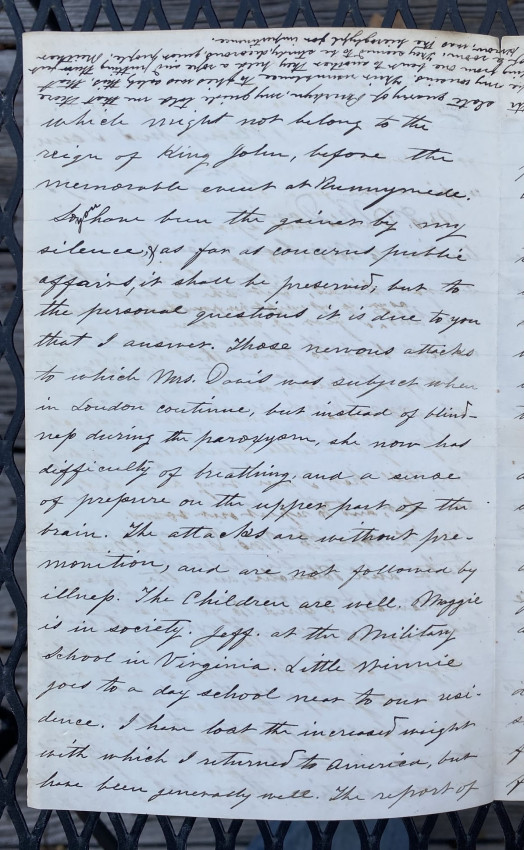 which might not belong to the
reign of King John, before the
memorable event at Runnymede.
So you have been the gainer by my
silence, & as far as concerns public
affairs, it shall be preserved, but to
the personal questions it is due to you
that I answer. Those nervous attacks
to which Mrs. Davis was subject when
in London continue, but instead of blind-
ness during the paroxysm, she now has
difficulty of breathing, and a sense
of pressure on the upper part of the
brain. The attacks are without pre-
monition, and are not followed by
illness. The Children are well. Maggie
is in society. Jeff. at the Military
School in Virginia. Little Winnie
goes to a day school near to our resi-
dence. I have lost the increased weight
with which I returned to America, but
have been generally well. The report of
slate quarry of Penrhyn, my guide told me that there
was the hieroglyph for impudence.